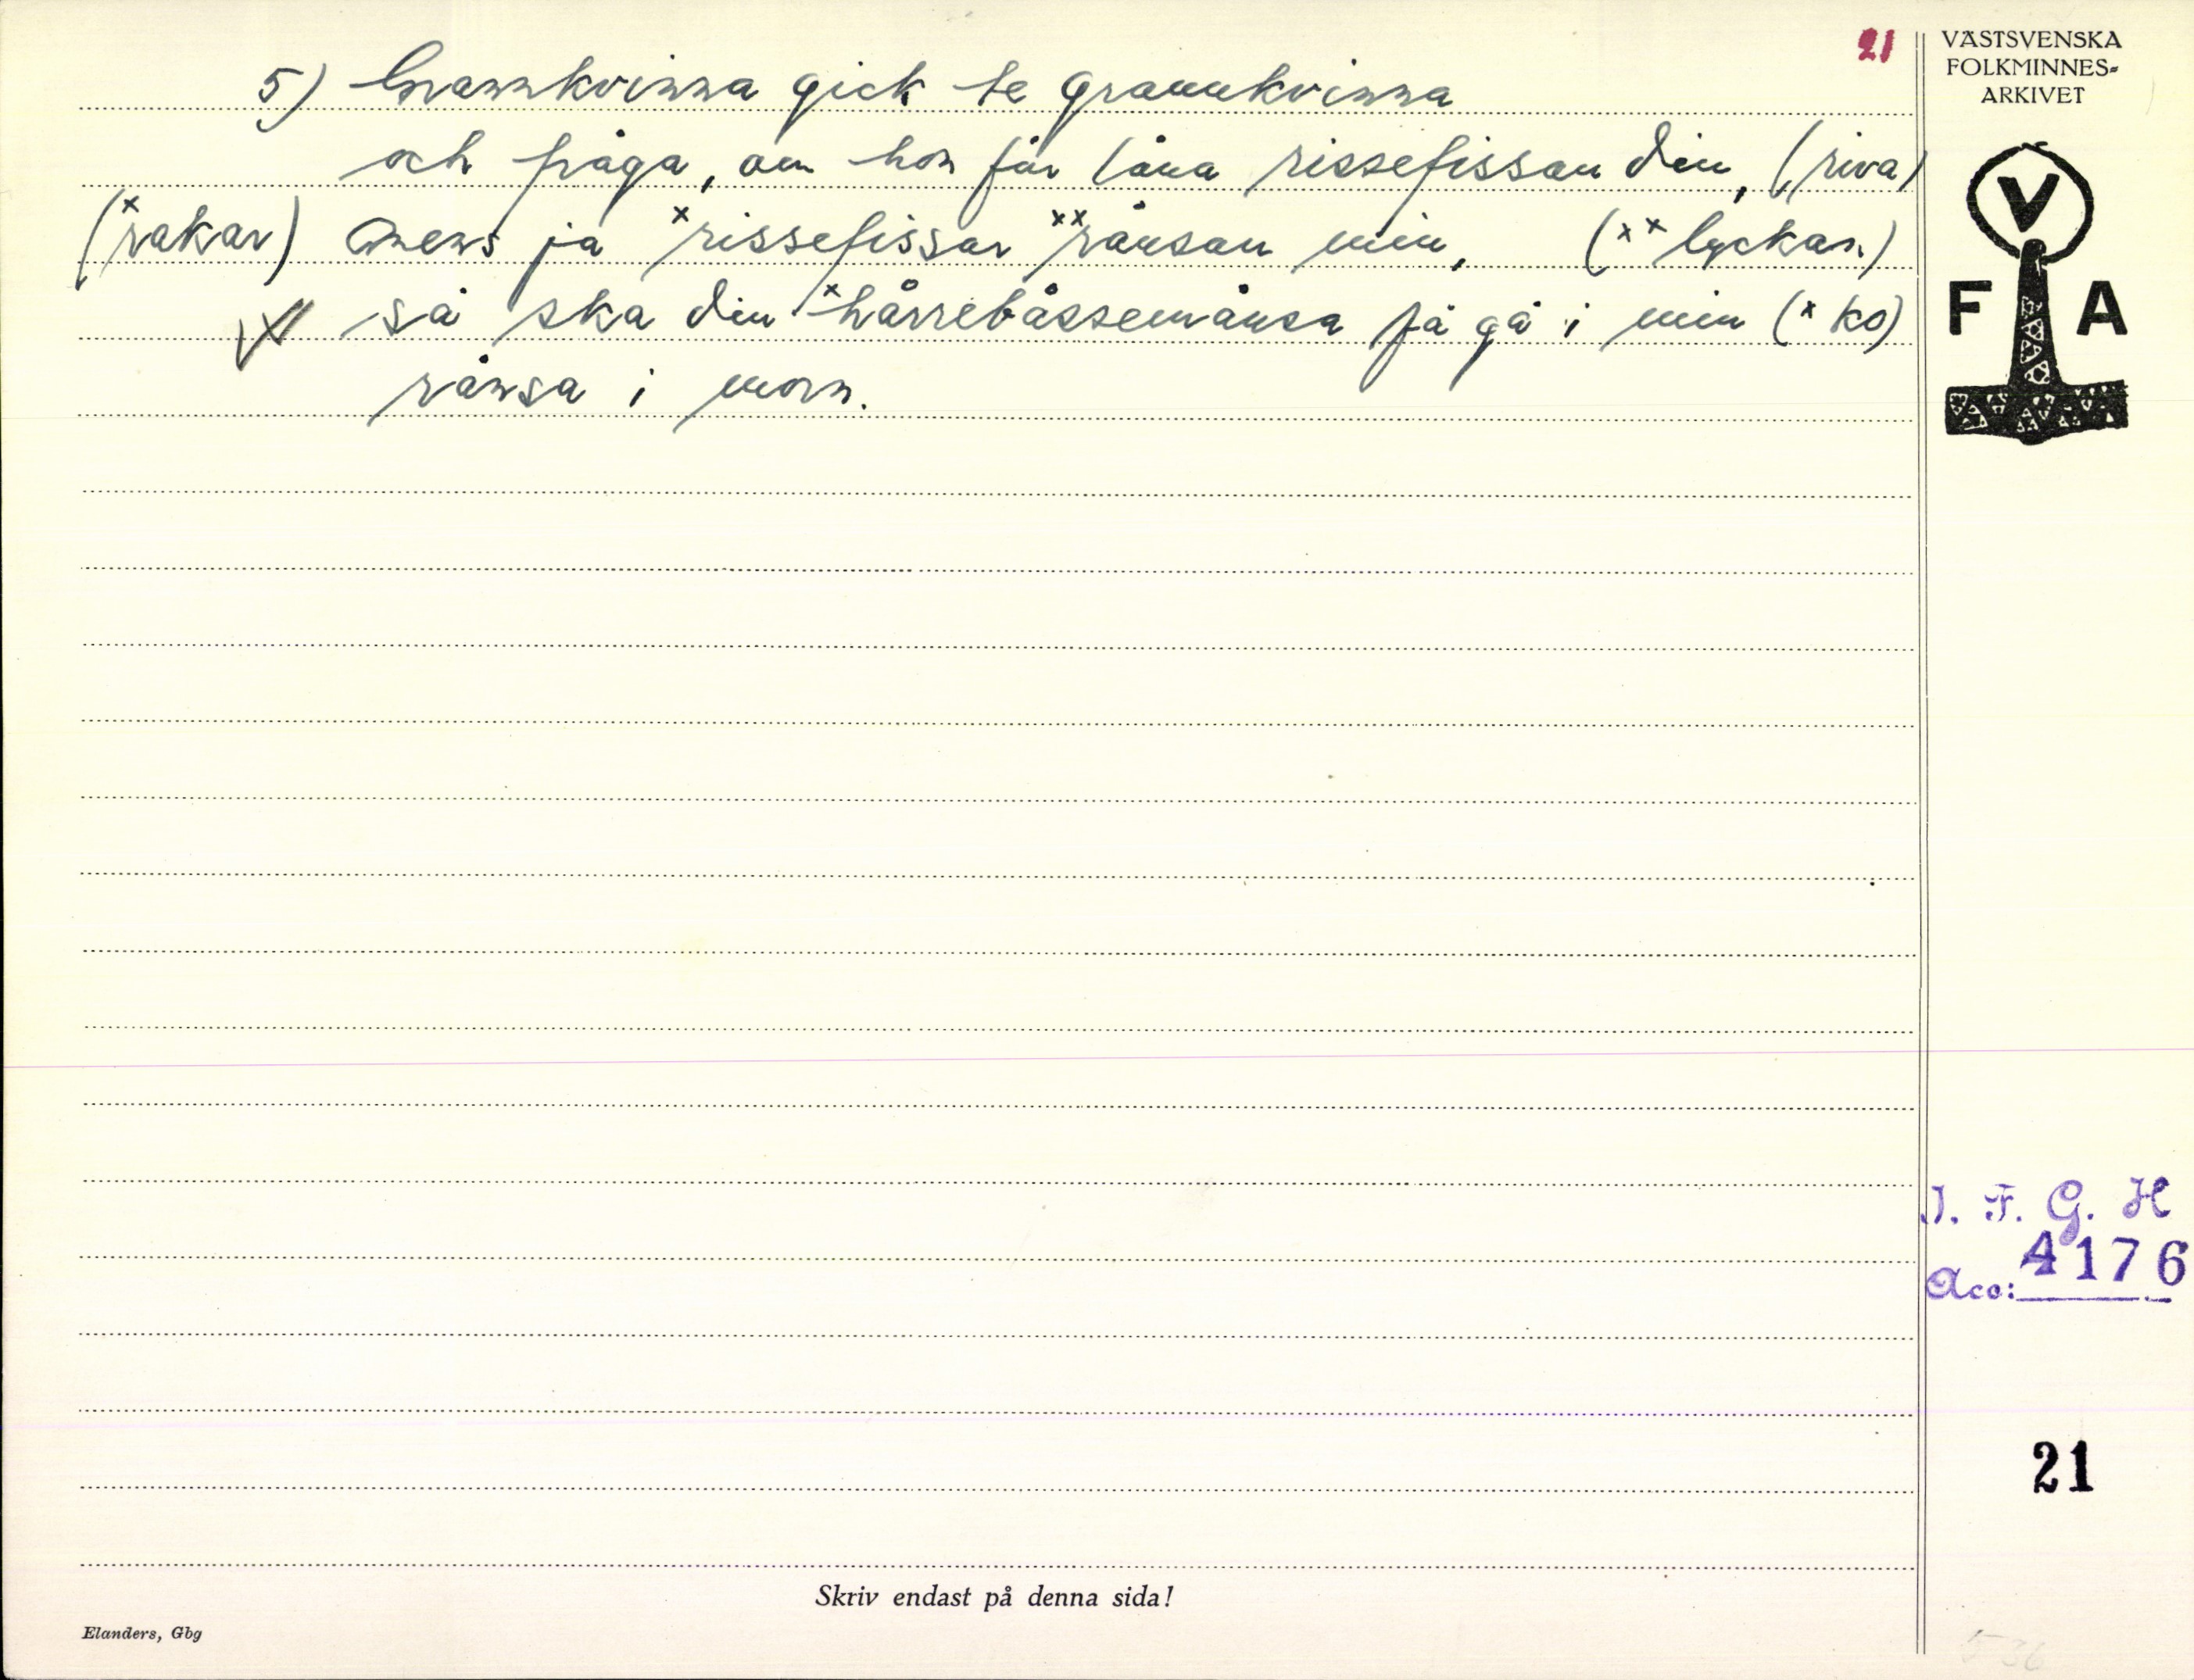 21
VÄSTSVENSKA
FOLKMINNES-
ARKIVET
V
F A
5) Grannkvinna gick te grannkvinna
och fråga, om hon får låna rissefissan din, (riva)
(x rakar) Mens ja x rissefissar xx rånsan min, (xx lyckan.)
så ska din x hårrebåssemånsa få gå i min (x ko)
rånsa i morn.
I. F. G. H
Acc: 4176
21
Skriv endast på denna sida!
Elanders, Gbg